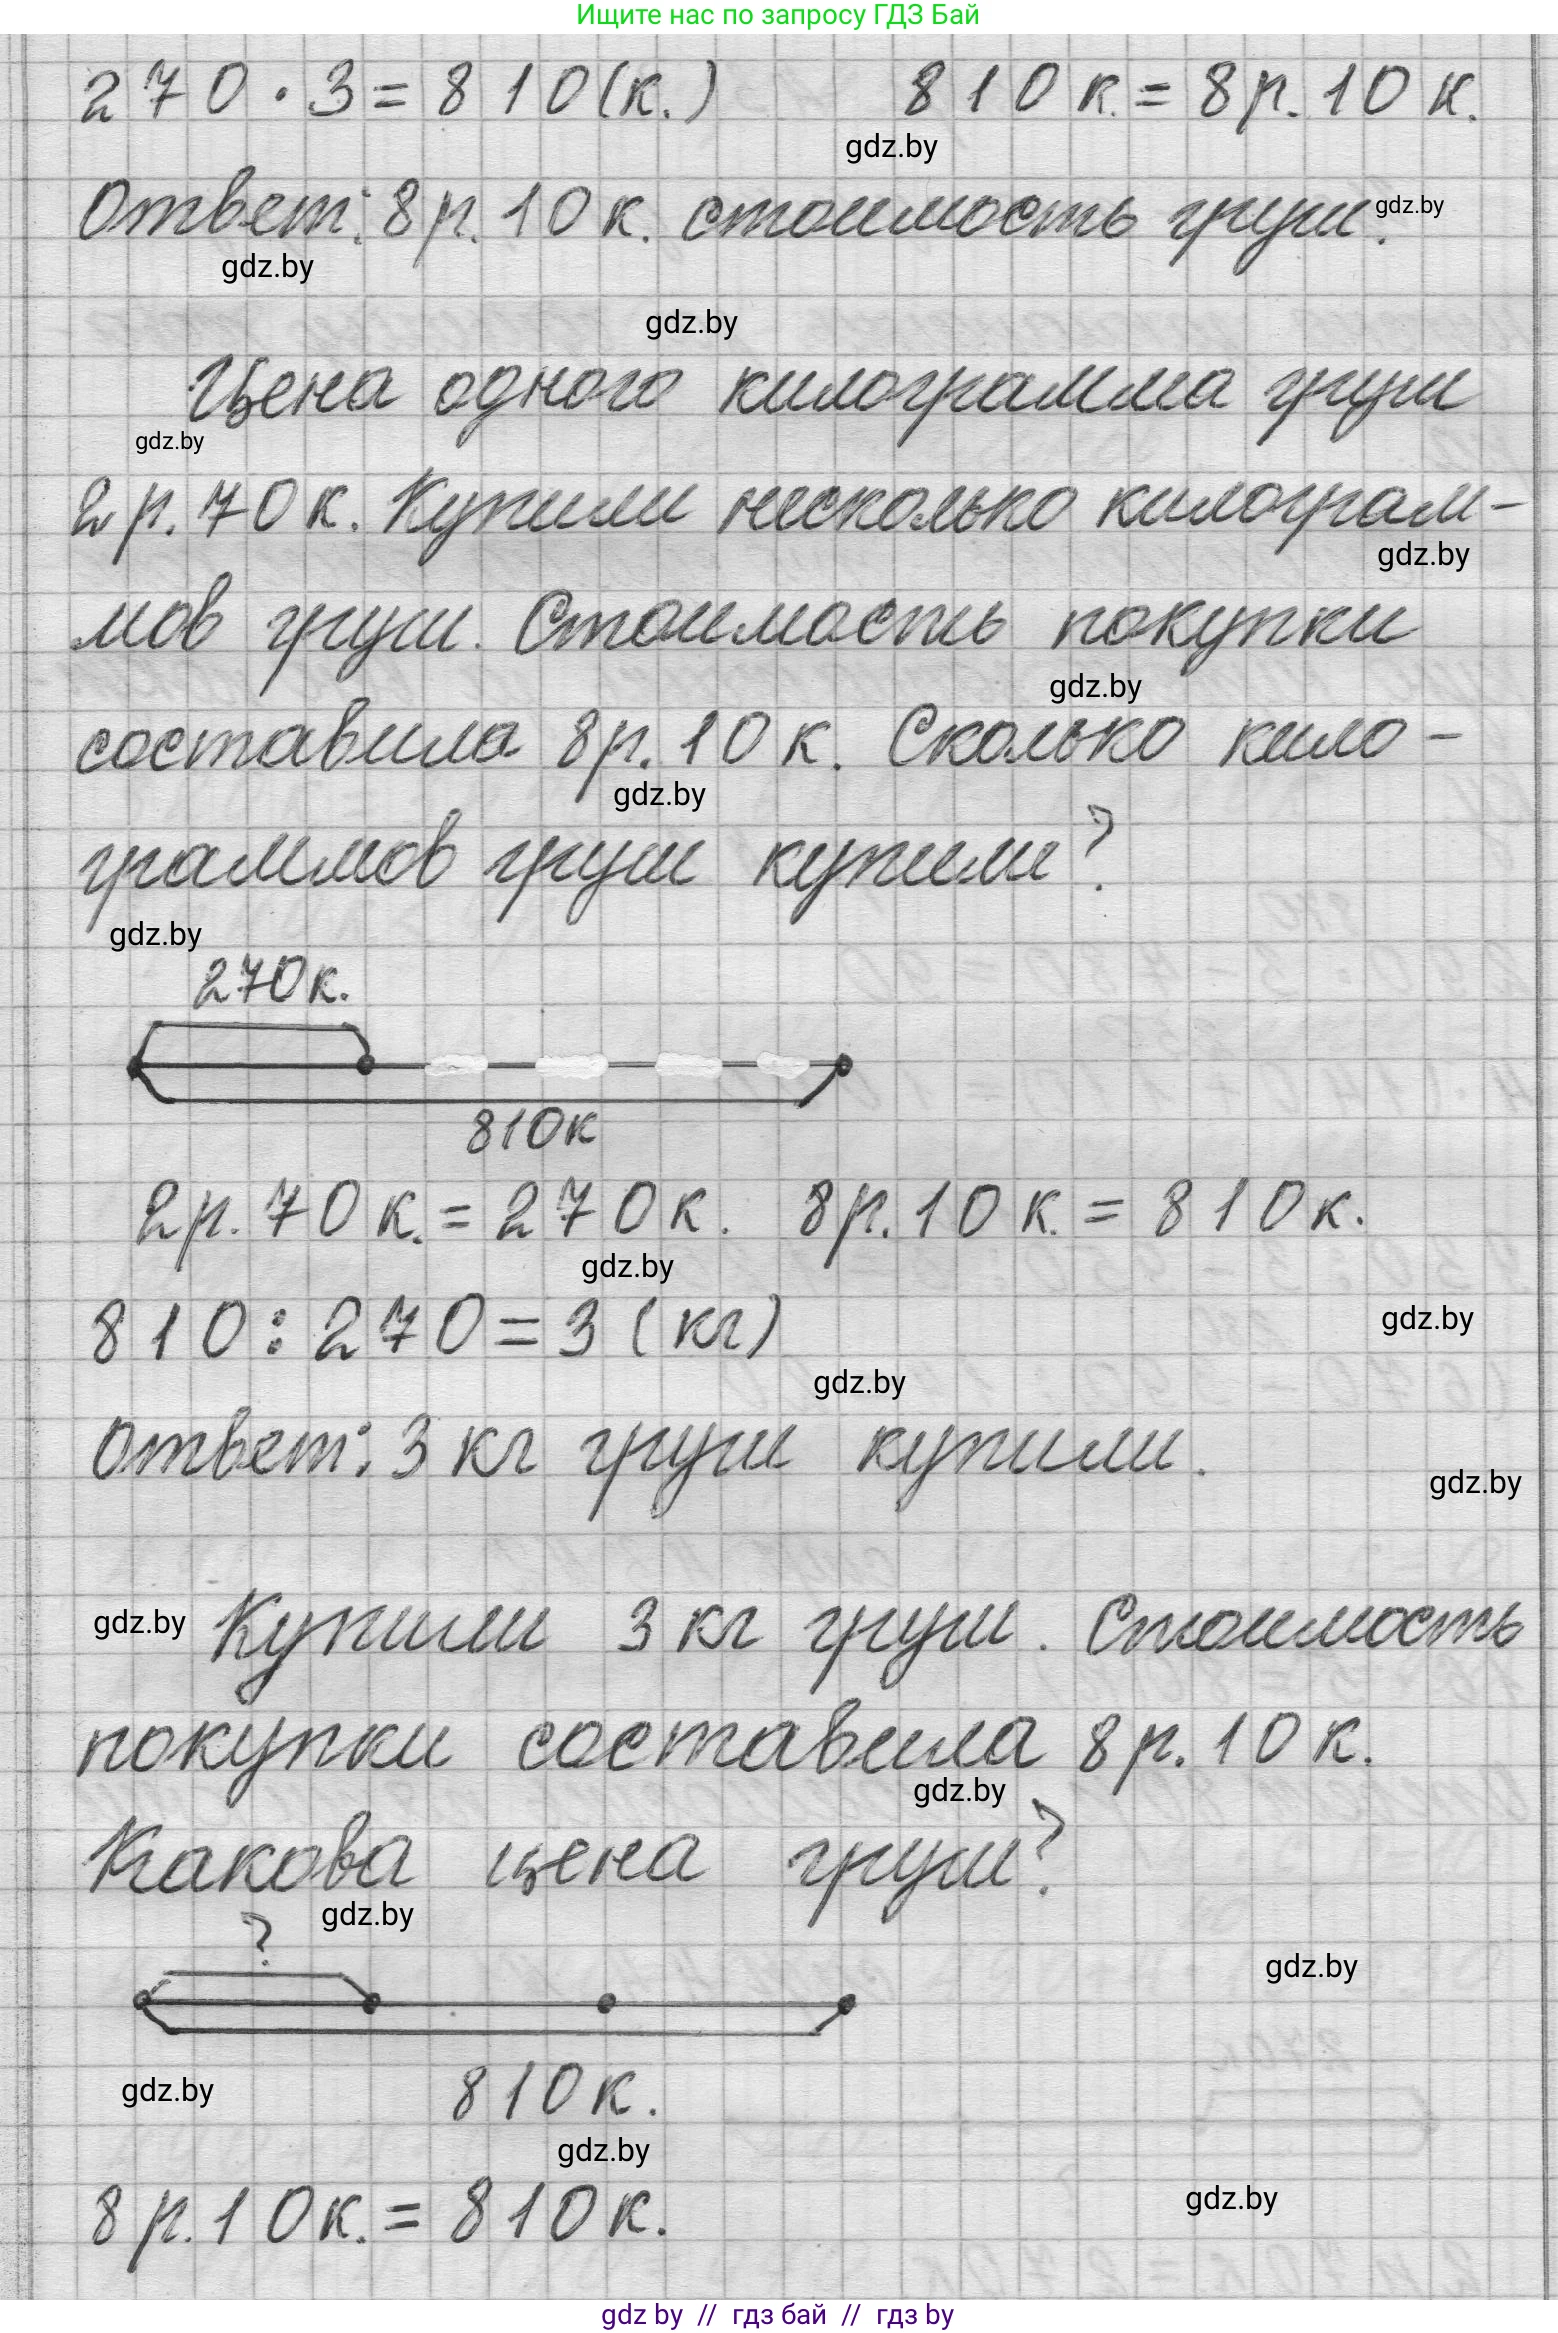 Ищите нас по запросу ГДЗ Бай
270 · 3 = 810 (к.) 810 к. = 8 р. 10 к.
gdz.by
Ответ: 8 р. 10 к. стоимость груш. gdz.by
gdz.by
gdz.by
Цена одного килограмма груш
gdz.by
2 р. 70 к. Купили несколько килограм-
gdz.by
мов груш. Стоимость покупки
gdz.by
составила 8 р. 10 к. Сколько кило-
gdz.by
граммов груш купили?
gdz.by
270 к.
810 к
2 р. 70 к. = 270 к. 8 р. 10 к. = 810 к.
gdz.by
810 : 270 = 3 (кг)
gdz.by
gdz.by
Ответ: 3 кг груш купили.
gdz.by
gdz.by Купили 3 кг груш. Стоимость
покупки составила 8 р. 10 к.
gdz.by
Какова цена груш?
gdz.by
?
gdz.by
810 к.
gdz.by
gdz.by
8 р. 10 к. = 810 к.
gdz.by
gdz by // гдз бай // гдз by